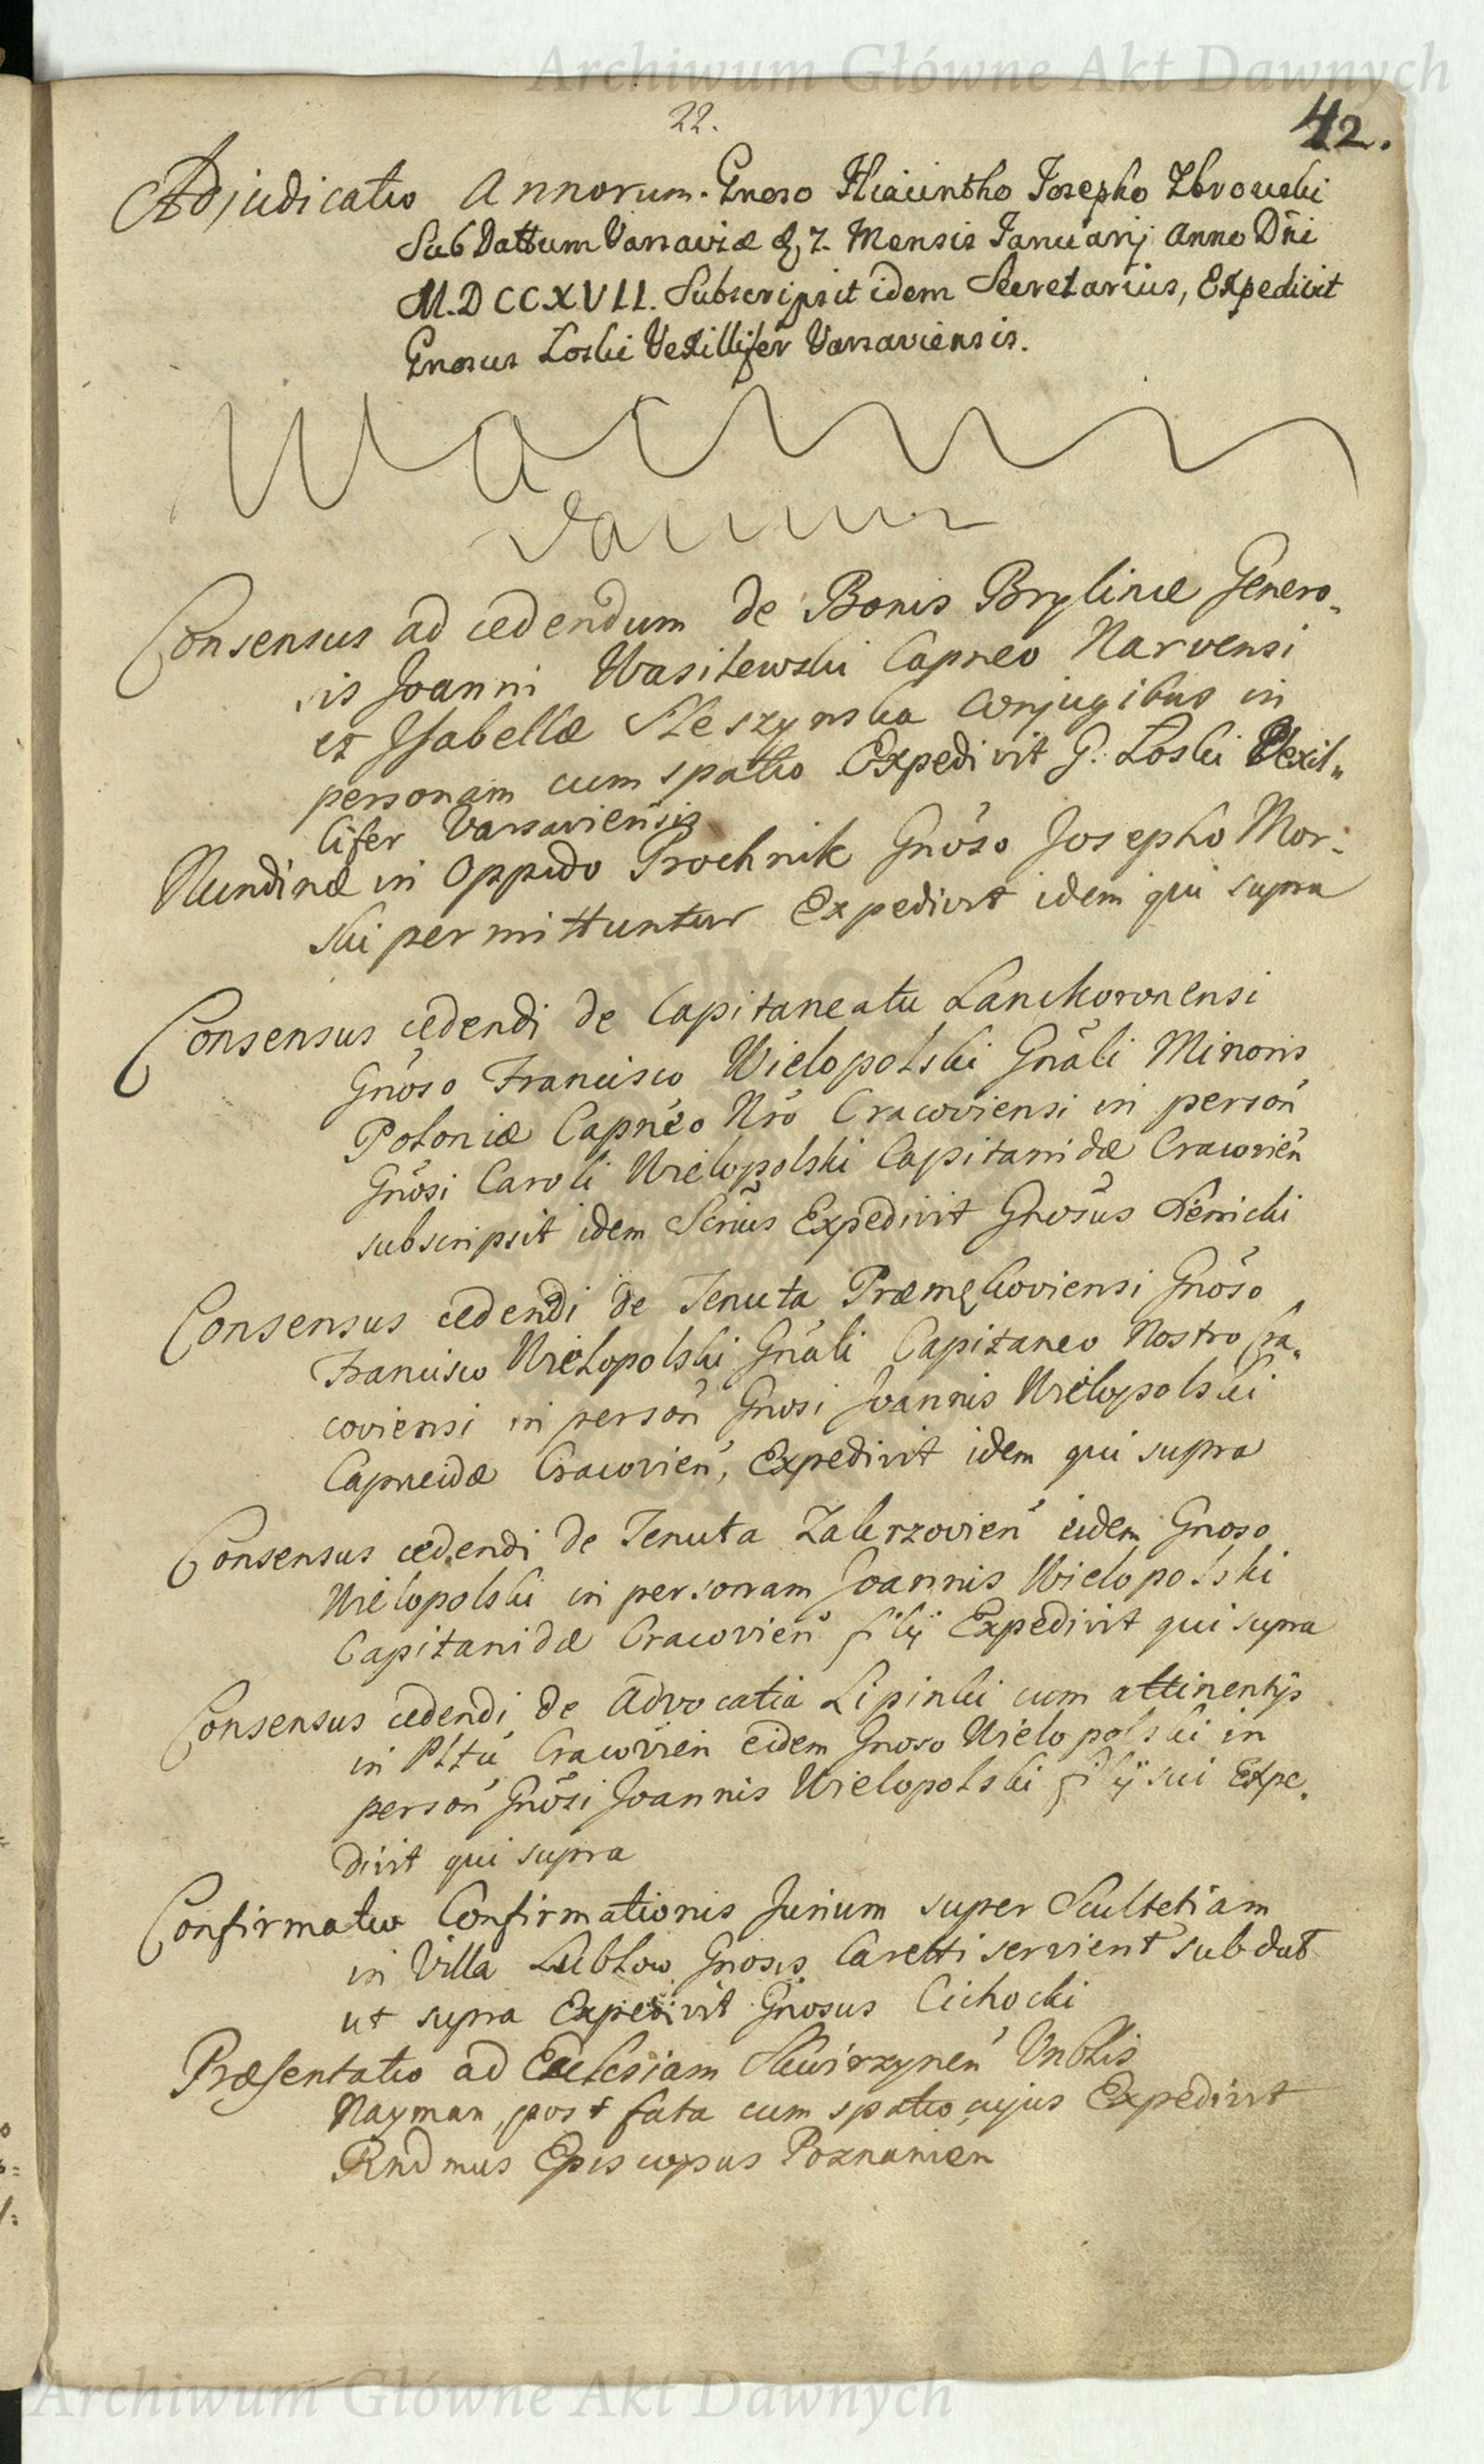 Archiwum Główne Akt Dawnych
22.
42.
Adjudicatio Annorum. Gnoso Hiacintho Josepho Zbrowski
Sub Dattum Varsaviæ 7. Mensis Januarij Anno Dñi
M.DCCXVII. Subscripsit idem Secretarius, Expedivit
Gnosus Loski Vexillifer Varsaviensis.
Consensus ad cedendum de Bonis Brylinæ Genero-
sis Joanni Wasilewski Capneo Narvensi
et Isabellæ Kleszynska Conjugibus in
personam cum spatio Expedivit G. Loski Vexil-
lifer Varsaviensis
Nundinæ in Oppido Prochnik Gnõso Josepho Mor-
ski permittuntur Expedivit idem qui supra
Consensus cedendi de Capitaneatu Lanckoronensi
Gnõso Francisco Wielopolski Gnãli Minoris
Poloniæ Capnẽo Nrõ Cracoviensi in persoñ
Gnõsi Caroli Wielopolski Capitanidæ Cracovieñ
subscripsit idem Scriũs Expedivit Gnosũs Sienicki
Consensus cedendi de Tenuta Præmęcoviensi Gnõso
Francisco Wielopolski Gnãli Capitaneo Nostro Cra-
coviensi in persoñ Gnosi Joannis Wielopolski
Capneidæ Cracovieñ, Expedivit idem qui supra
Consensus cedendi de Tenuta Zakrzovieñ eidem Gnoso
Wielopolski in personam Joannis Wielopolski
Capitanidæ Cracovieñ filij Expedivit qui supra
Consensus cedendi de Advocatia Lipinki cum attinentijs
in Plttũ Cracovien eidem Gnoso Wielopolski in
persoñ Gnõsi Joannis Wielopolski filij sui Expe-
divit qui supra
Confirmatio Confirmationis Jurium super Scultetiam
in Villa Lublow Gnosis Caretti servient sub dat
ut supra Expedivit Gnosus Cichocki
Præsentatio ad Ecclesiam Skwirzyneñ Vnblis
Nayman, post fata cum spatio cujus Expedivit
Rndmus Episcopus Poznanien
Archiwum Główne Akt Dawnych